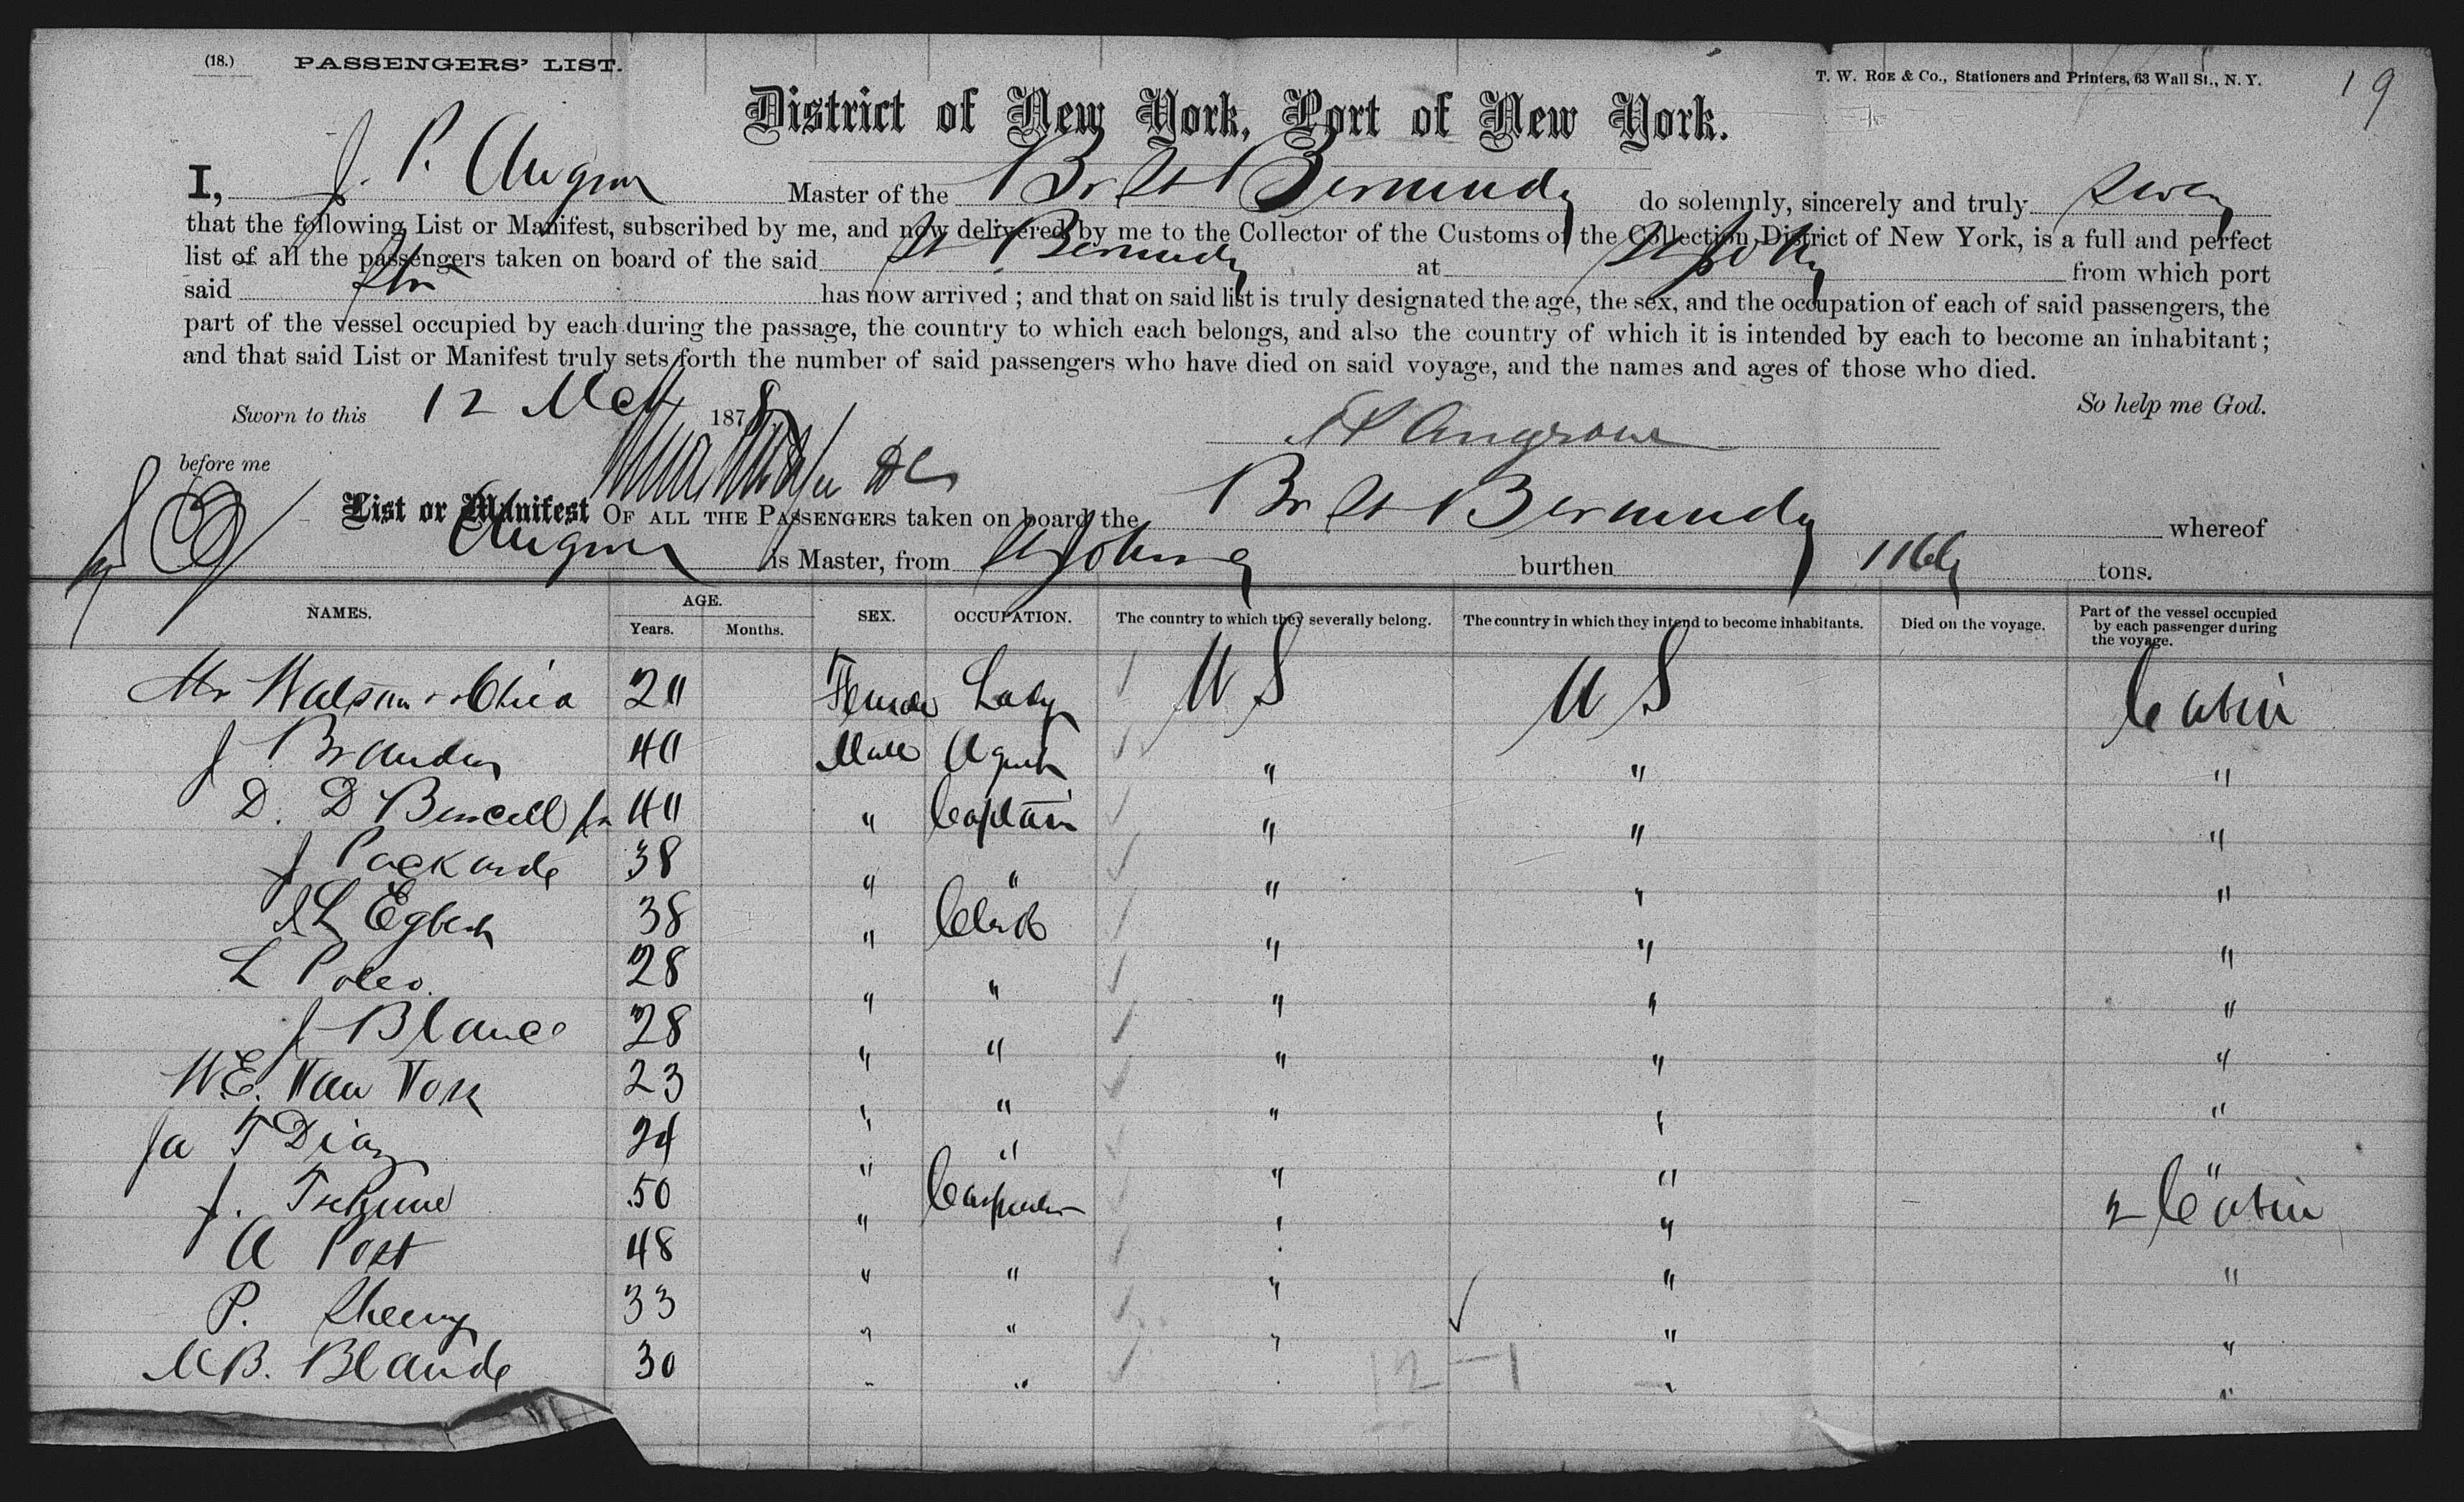 (18.) PASSENGERS' LIST.
T. W. ROE & Co., Stationers and Printers, 63 Wall St., N. Y. 19
District of New York, Port of New York.
I, J. P. Master of the Br St Bermuda do solemnly, sincerely and truly swear
that the following List or Manifest, subscribed by me, and now delivered by me to the Collector of the Customs of the Collection District of New York, is a full and perfect
list of all the passengers taken on board of the said St Bermuda at St Johns from which port
said Str has now arrived ; and that on said list is truly designated the age, the sex, and the occupation of each of said passengers, the
part of the vessel occupied by each during the passage, the country to which each belongs, and also the country of which it is intended by each to become an inhabitant ;
and that said List or Manifest truly sets forth the number of said passengers who have died on said voyage, and the names and ages of those who died.
Sworn to this 12 Mch 1878 So help me God.
J P Angrove
before me DC
List or Manifest OF ALL THE PASSENGERS taken on board the Br St Bermuda whereof
is Master, from St Johns burthen tons.
NAMES. AGE. Years. Months. SEX. OCCUPATION. The country to which they severally belong. The country in which they intend to become inhabitants. Died on the voyage. Part of the vessel occupied by each passenger during the voyage.
Mr Watson 20 Female Lady U S U S Cabin
J 40 Male Agent " " "
D. D 40 " Captain " " "
J Packarde 38 " " " " "
L Egbert 38 " Clerk " " "
L Poleo. 28 " " " " "
J Blance 28 " " " " "
W. E. Van Voss 23 " " " " "
Ja T Diaz 24 " " " " "
J. 50 " Carpenter " " 2 Cabin
A Post 48 " " " " "
P. Sheeny 33 " " " " "
B. Blande 30 " " " " "
12 - 1